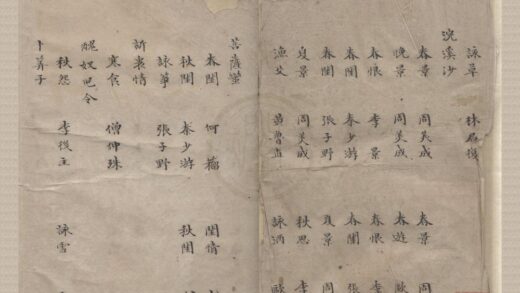 詠草 林君復
浣溪沙
春景 周美成 春景 周
晚景 周美成 春遊
春恨 李景 春恨 李
春閨 秦少游 春閨
春閨 張子野 夏景
夏景 周美成 秋思 李
漁父 黃魯直 詠酒 歐
菩薩蠻
春閨 何籀 閨情
秋閨 秦少游 秋閨
詠箏 張子野
訴衷情
寒食 僧仲殊
醜奴兒令
秋怨 李後主 詠雪
卜算子